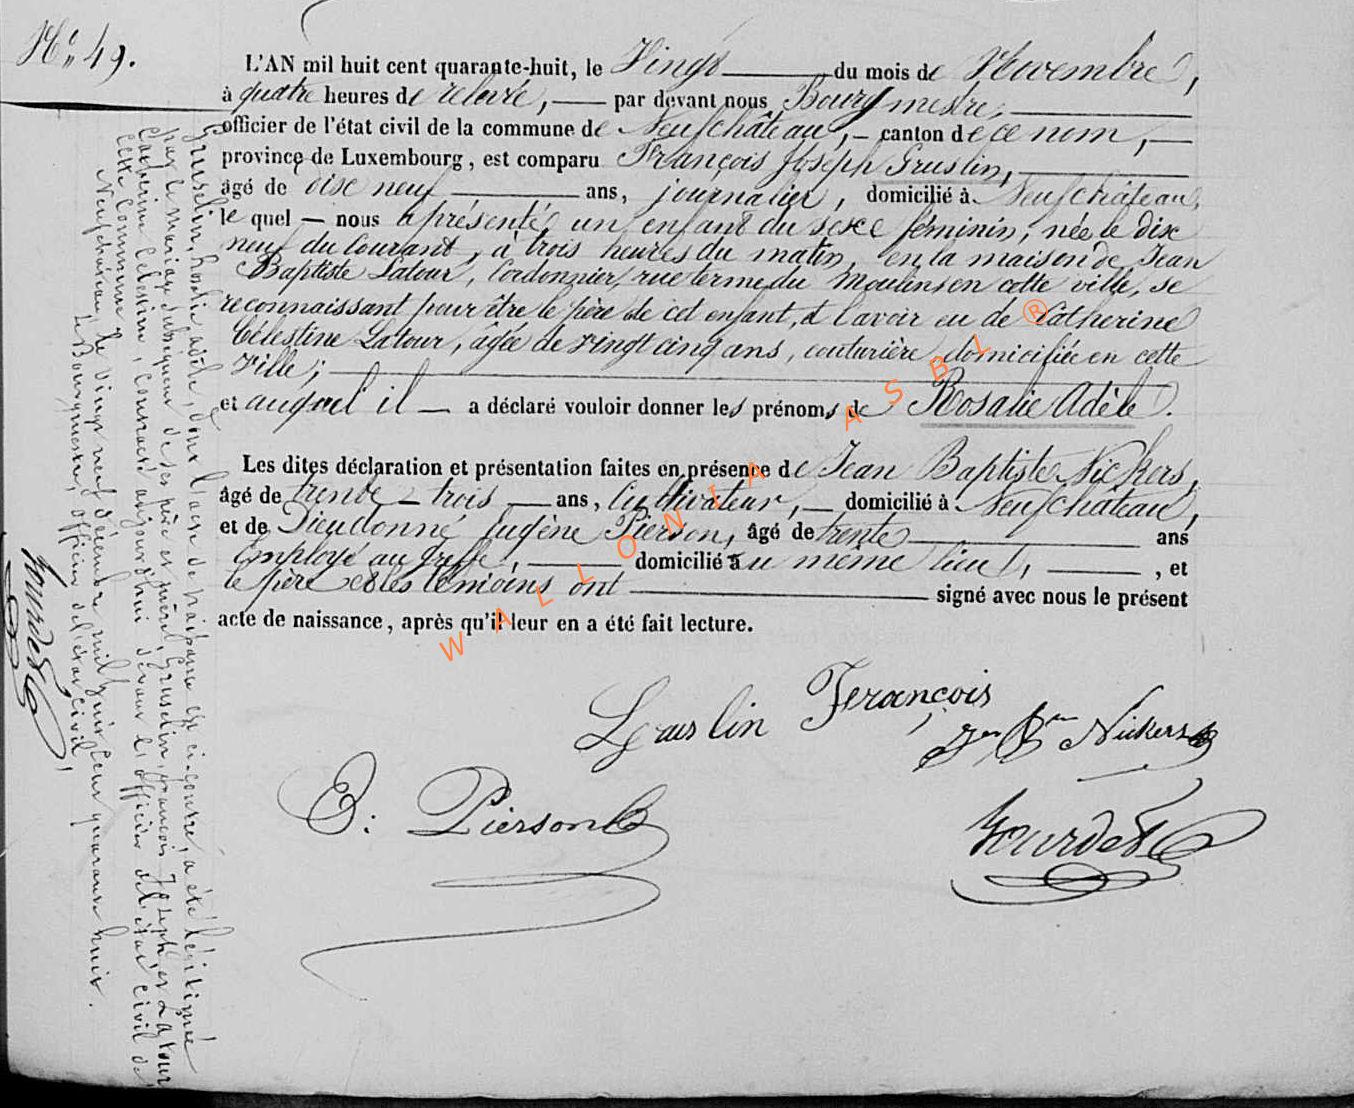 N° 49.
L'AN mil huit cent quarante-huit, le Vingt du mois de Novembre,
à quatre heures de relevée, — par devant nous Bourgmestre,
officier de l'état civil de la commune de Neufchâteau, — canton de ce nom, —
province de Luxembourg, est comparu François Joseph Gruslin,
âgé de dix neuf ans, journalier, domicilié à Neufchâteau,
le quel — nous a présenté un enfant du sexe féminin, née le dix
neuf du courant, à trois heures du matin, en la maison de Jean
Baptiste Latour, Cordonnier, rue terme du Moulin en cette ville, se
reconnaissant pour être le père de cet enfant, et l'avoir eu de Catherine
Célestine Latour, âgée de vingt cinq ans, couturière domiciliée en cette
Ville; —
et auquel il — a déclaré vouloir donner les prénoms de Rosalie Adèle.
Les dites déclaration et présentation faites en présence de Jean Baptiste Nickers,
âgé de trente - trois — ans, Cultivateur, — domicilié à Neufchâteau,
et de Dieudonné Eugène Pierson, âgé de trente ans
Employé au greffe, — domicilié au même lieu, — , et
le père et les témoins ont — signé avec nous le présent
acte de naissance, après qu'il leur en a été fait lecture.
Gruslin François
Jn Bte Nickers
E: Pierson
Gruselin, Rosalie adèle, dont l'acte de naissance est ci-contre, a été légitimée
par le mariage subséquent de ses père et mère, Gruselin, françois Joseph, et Latour
Catherine Célestine, contracté aujourd'hui devant l'officier de l'état civil de
cette Commune.
Neufchâteau, le vingt neuf décembre mil huit cent quarante huit.
Le Bourgmestre, officier de l'état civil,
WALLONIA ASBL ®